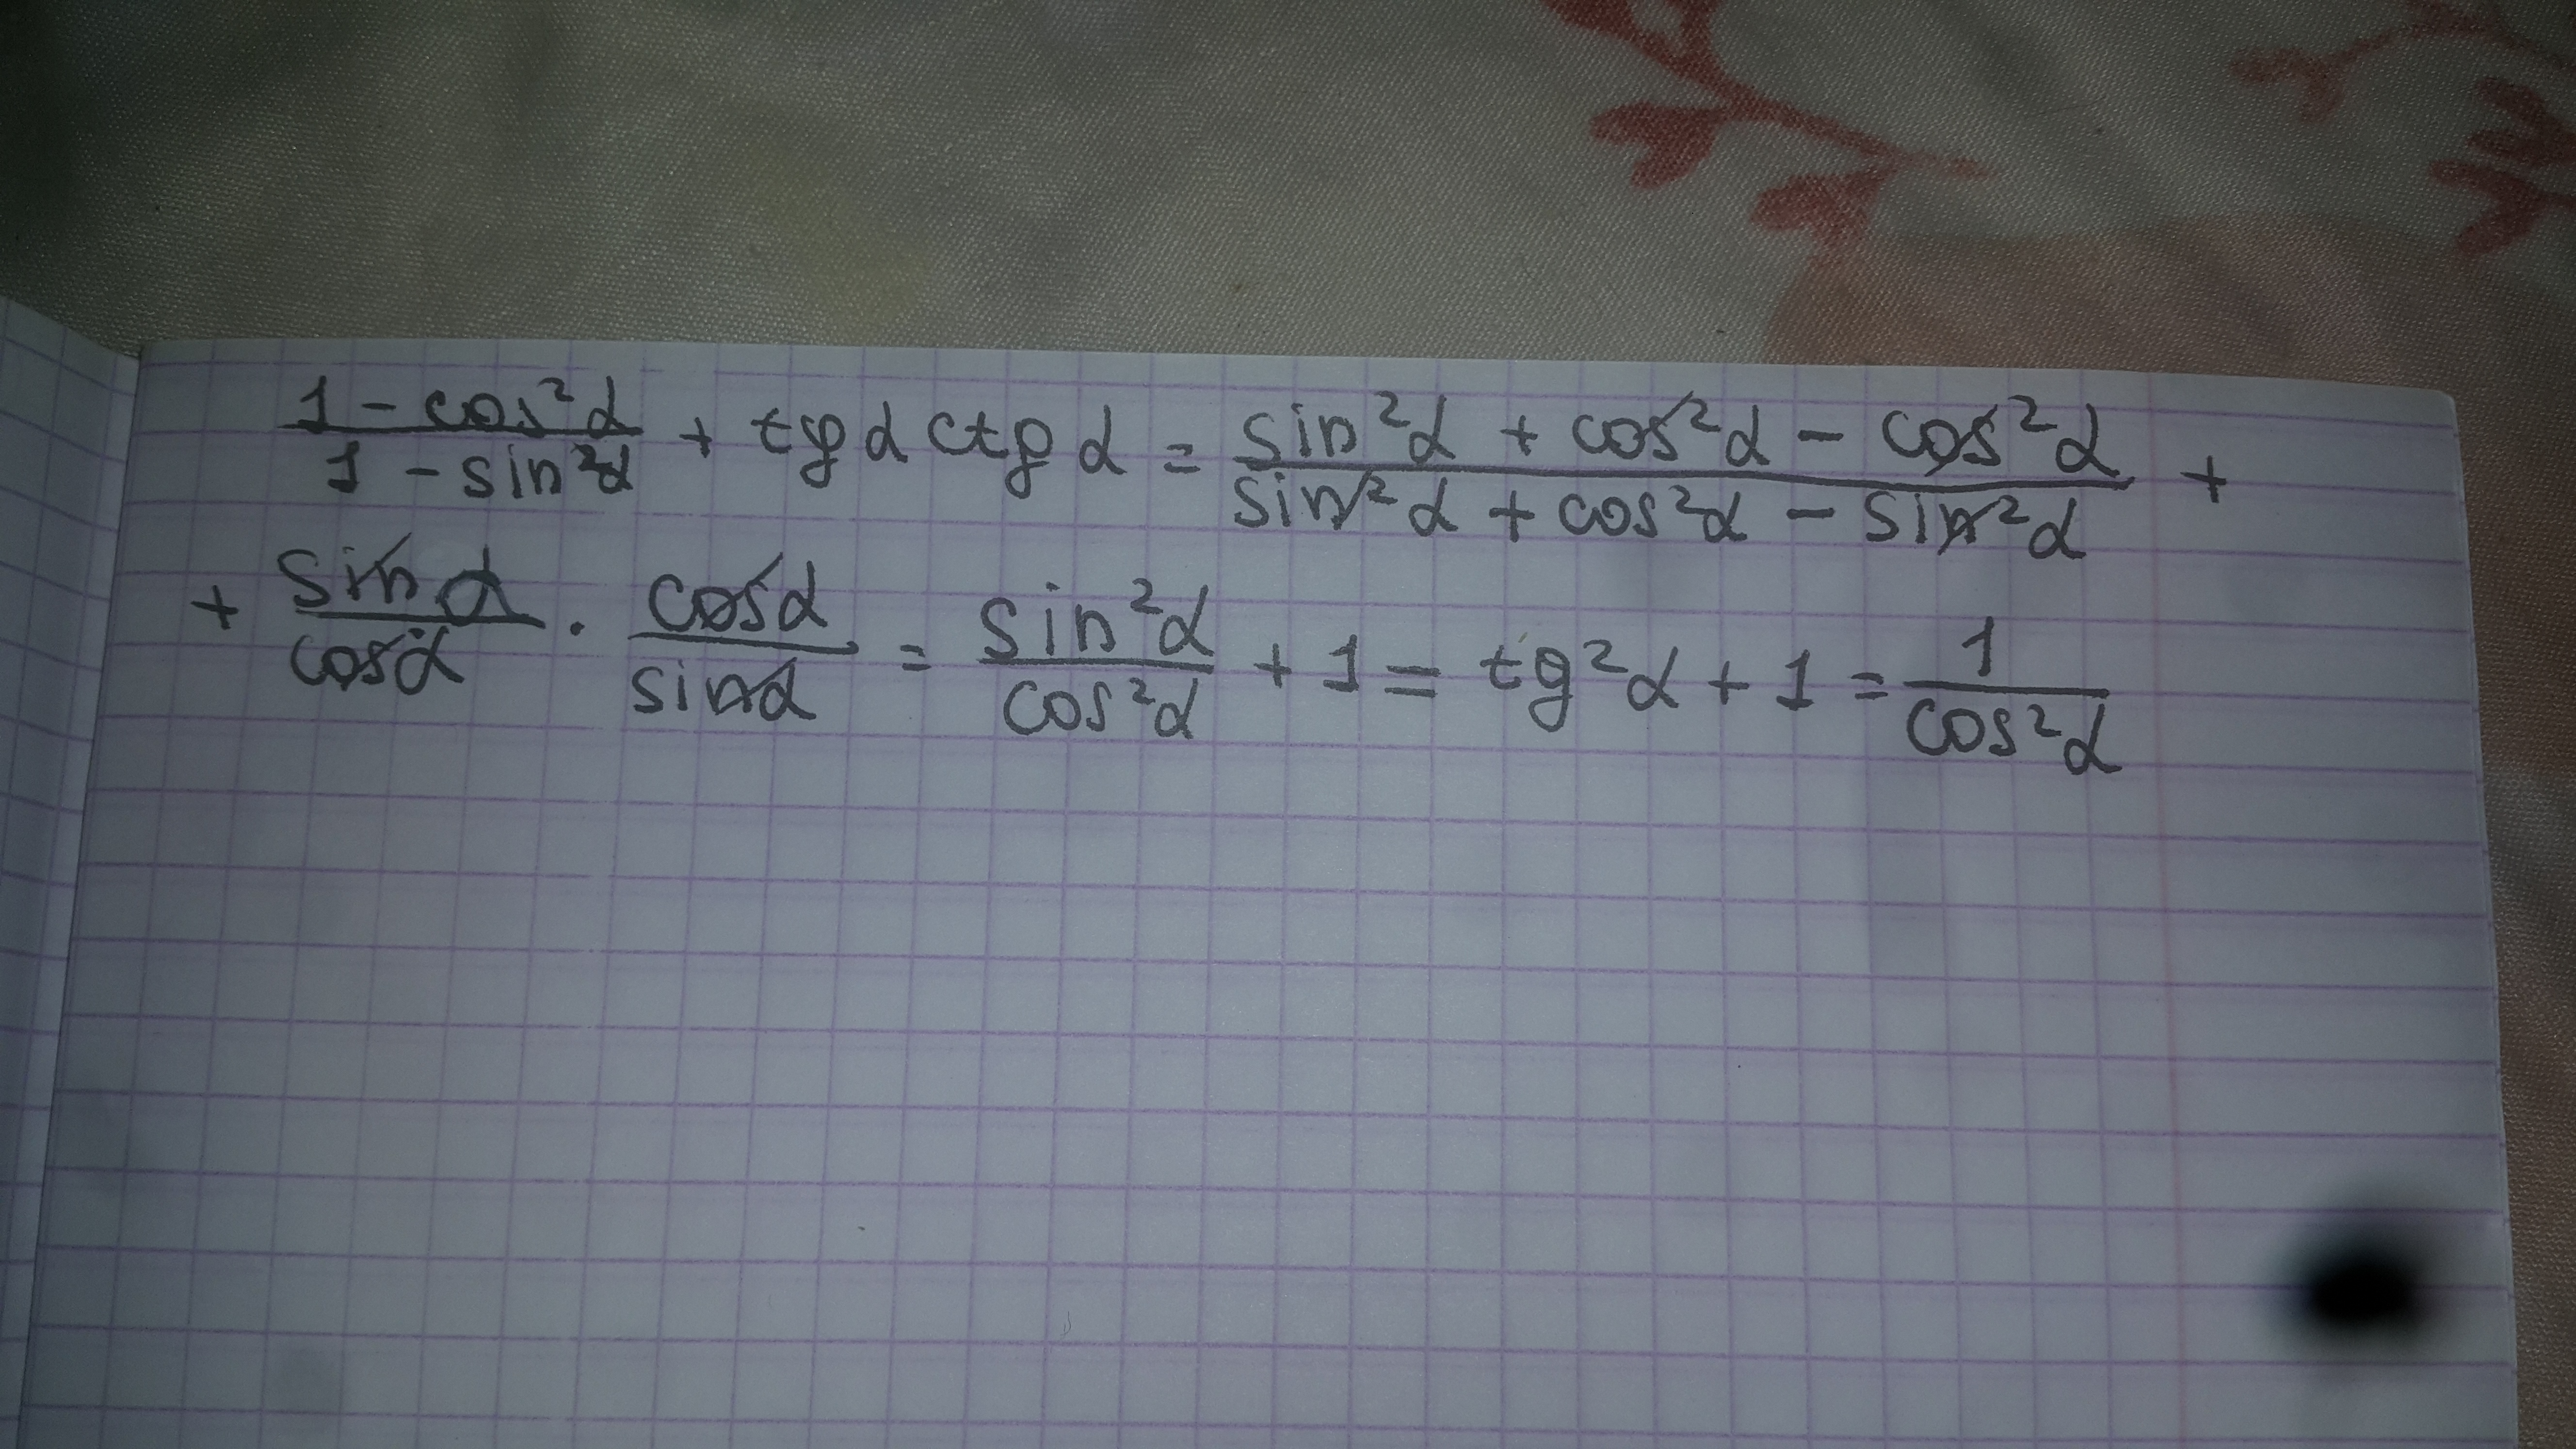 (1 - cos²α)/(1 - sin²α) + tgα ctgα = (sin²α + cos²α - cos²α)/(sin²α + cos²α - sin²α) +
+ sinα/cosα · cosα/sinα = sin²α/cos²α + 1 = tg²α + 1 = 1/cos²α